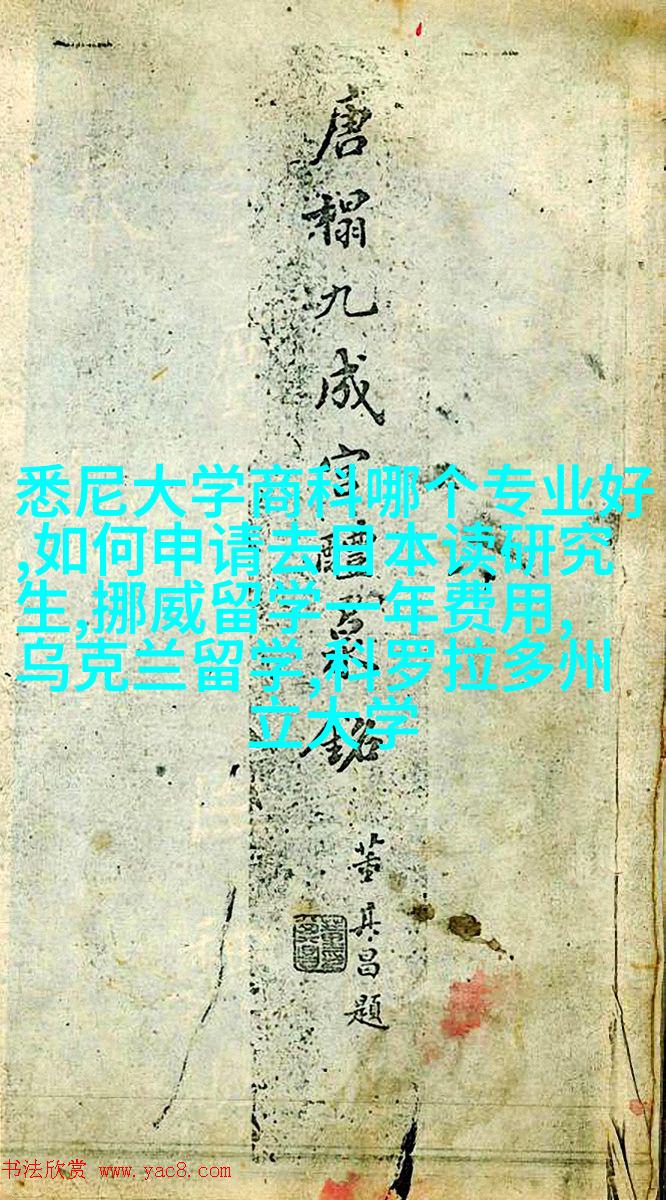 唐榻九成宮醴泉銘
悉尼大学商科哪个专业好
,如何申请去日本读研究
生,挪威留学一年费用,
乌克兰留学,科罗拉多州
立大学
董其昌題
书法欣赏 www.yac8.com